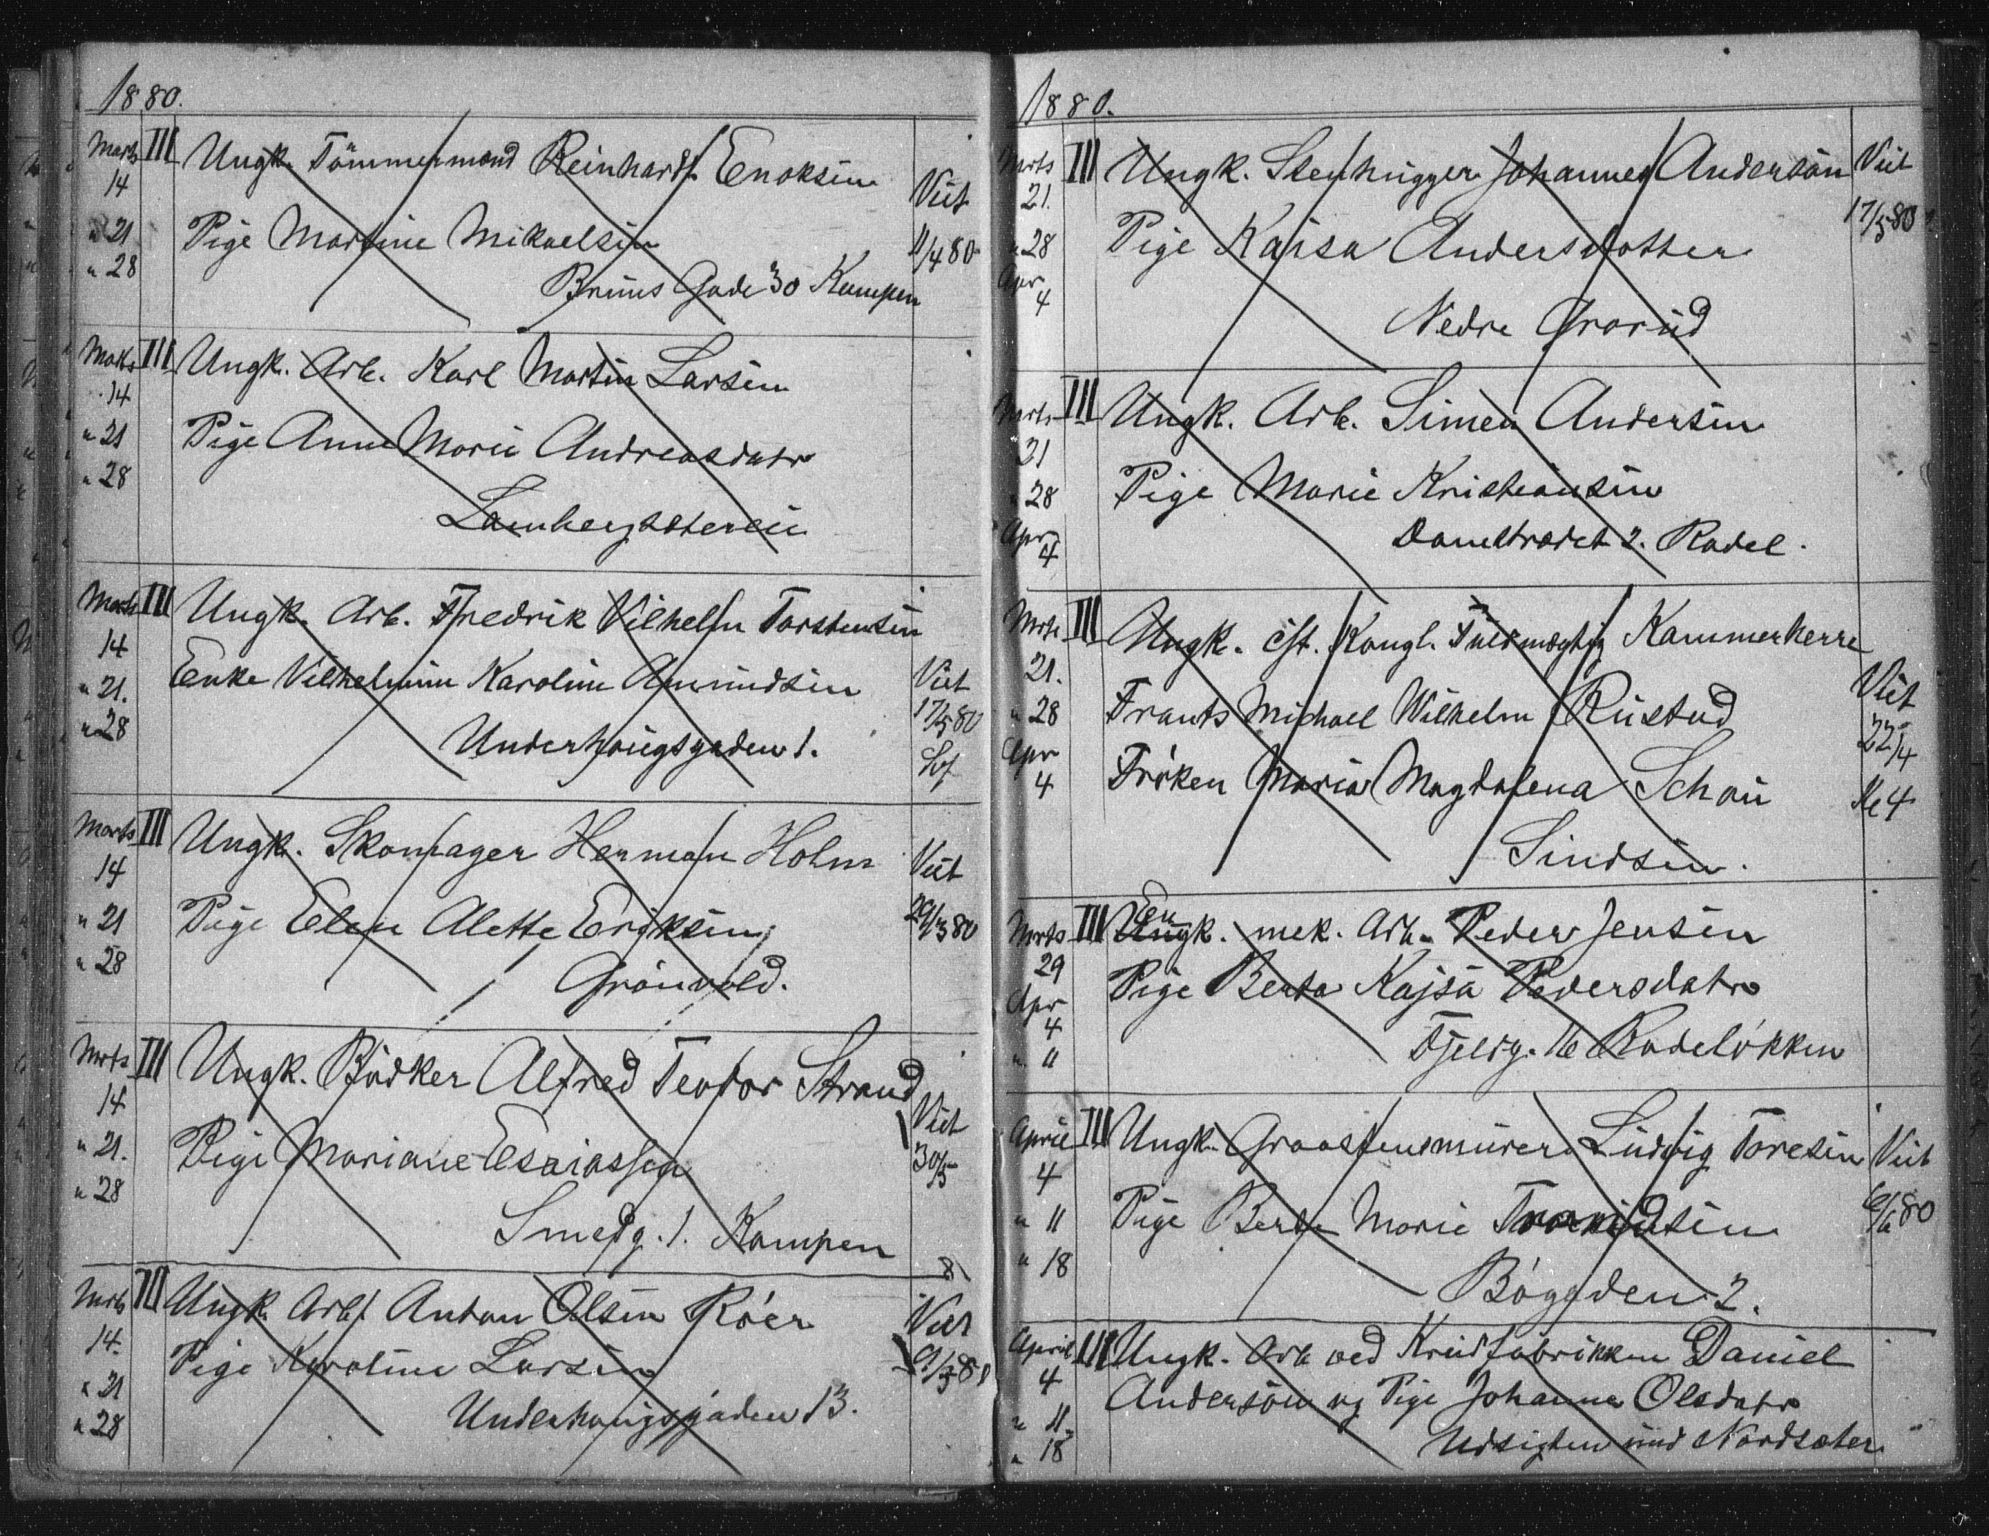 1880.
Marts III Ungk. Tömmermand Reinhardt Enoksen
14 Viet
" 21 Pige Martine Mikaelsen 11/4 80
" 28 Bruns Gade 30 Kampen
Marts III Ungk. Arb. Karl Martin Larsen
14
" 21 Pige Anne Marie Andreasdatr
" 28
Marts III Ungk. Arb. Fredrik Vilhelm Torstensen
14
" 21. Enke Vilhelmine Karoline Amundsen Viet
17/5 80
" 28 Underhaugsgaden 1.
Marts III Ungk. Skomager Herman Holm
14 Viet
" 21 Pige Elen Alette Eriksen 29/3 80
" 28 Grönvold.
Mrts III Ungk. Bödker Alfred Teodor Strand
14 Viet
" 21. Pige Mariane Esaiassen 30/5
" 28 Smedg. 1. Kampen
Mrts III Ungk. Arb. Anton Olsen Röer Viet
14. Pige Karoline Larsen
" 21
" 28 Underhaugsgaden 13.
1880.
Mrts III Ungk. Stenhugger Johannes Anderson Viet
21. 17/5 80
" 28 Pige Kajsa Andersdotter
Apr
4 Nedre Grorud
Mrts III Ungk. Arb. Simen Andersen
21
" 28 Pige Marie Kristiansen
Apr
4 Danestrædet 2. Rodel.
Mrts III Ungk. cst. Kongl. Fuldmægtig Kammerherre
21. Viet
" 28 Frants Michael Wilhelm Rustad 22/4
Apr
4 Fröken Maria Magdalena Schou Kl 4
Sindsen.
Mrts III Ungk. En mek. Arb. Peder Jensen
29 Pige Berta Kajsa Pedersdatr
Apr
4
" 11 Fjeldg. 16 Rodelökken
April III Ungk. Graastensmurer Ludvig Toresen Viet
4
" 11 Pige Berte Marie 6/6 80
" 18 Bögaden 2.
April III Ungk. Arb. ved Krudfabrikken Daniel
4 Anderson og Pige Johanne Olsdatr
" 11
" 18 Udsigten und Nordsæter.